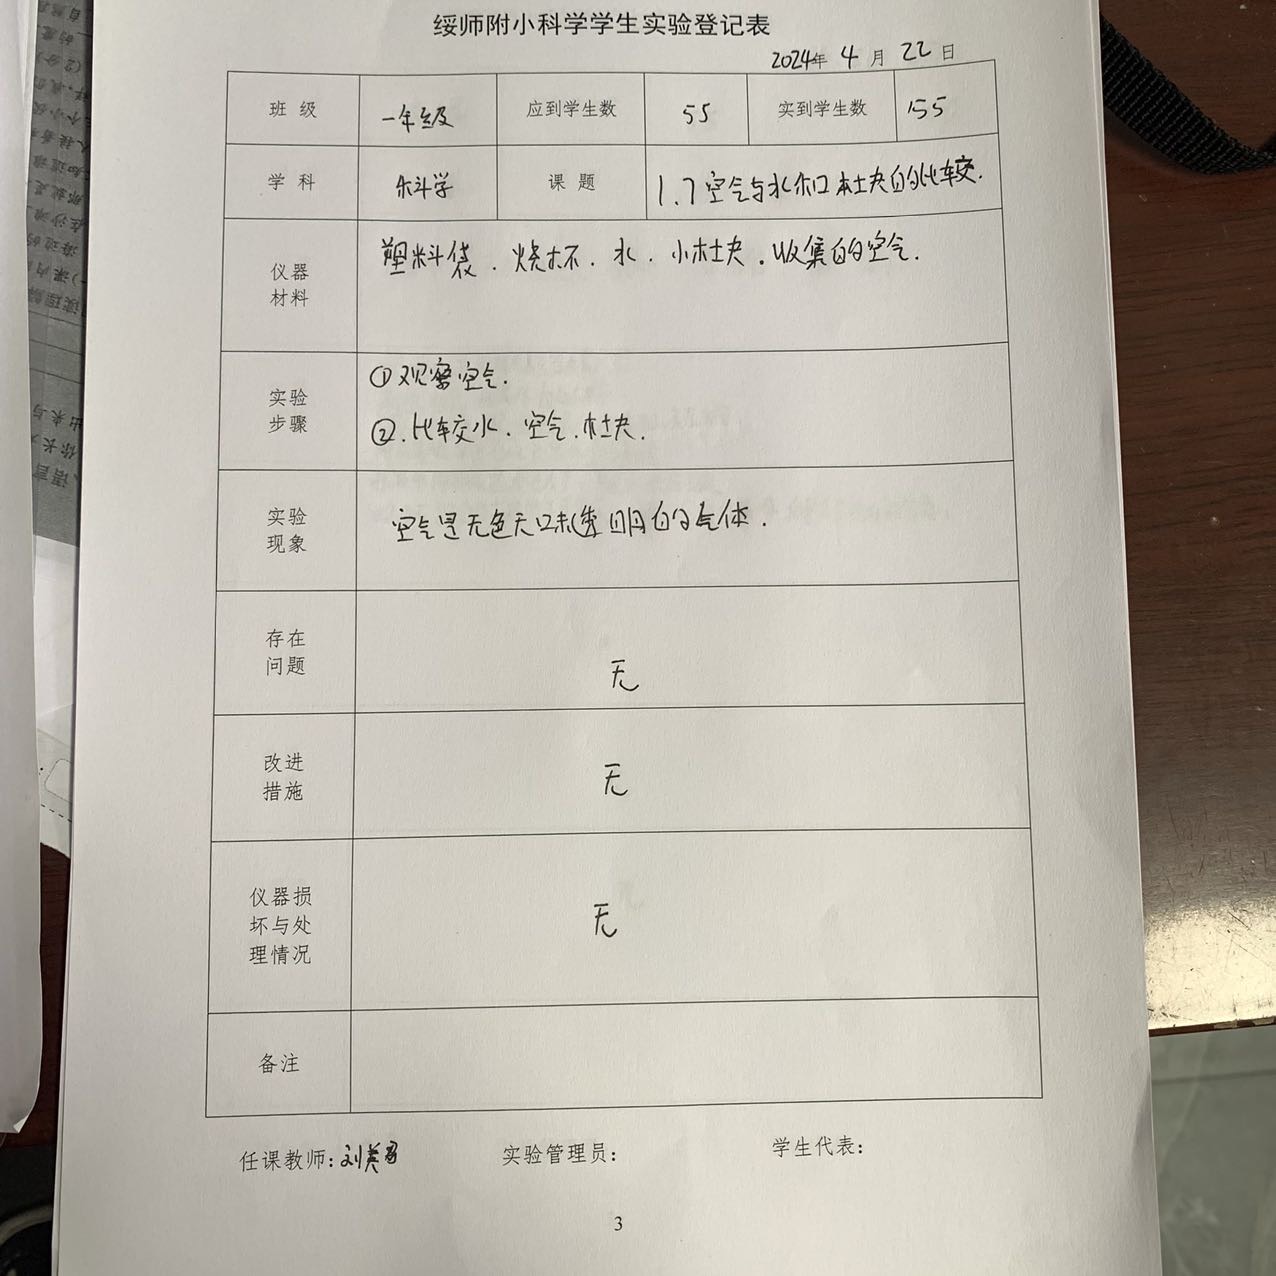 绥师附小科学学生实验登记表
2024年 4 月 22 日
班 级 一年级 应到学生数 55 实到学生数 55
学 科 科学 课 题 1.7空气与水和木块的比较.
仪器
材料
塑料袋、烧杯、水、小木块、收集的空气.
实验
步骤
①观察空气.
②.比较水、空气、木块.
实验
现象
空气是无色无味透明的气体.
存在
问题
无
改进
措施
无
仪器损
坏与处
理情况
无
备注
任课教师: 刘美 实验管理员: 学生代表:
3